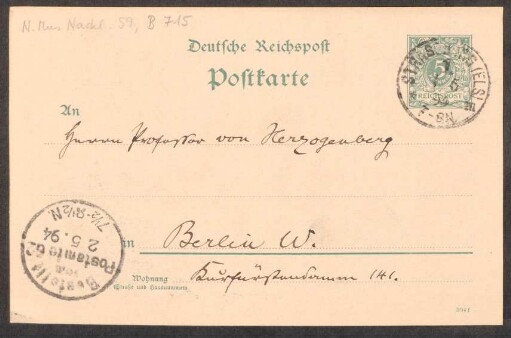 N. Mus. Nachl. 59, B 715
Deutsche Reichspost
Postkarte
An
Herrn Professor von Herzogenberg
in Berlin W.
Wohnung Kurfürstendamm 141.
(Straße und Hausnummer)
REICHSPOST
(ELS)
7-8N
Bestellt
vom
Postamte 62
2 5. 94
7½-8½N.